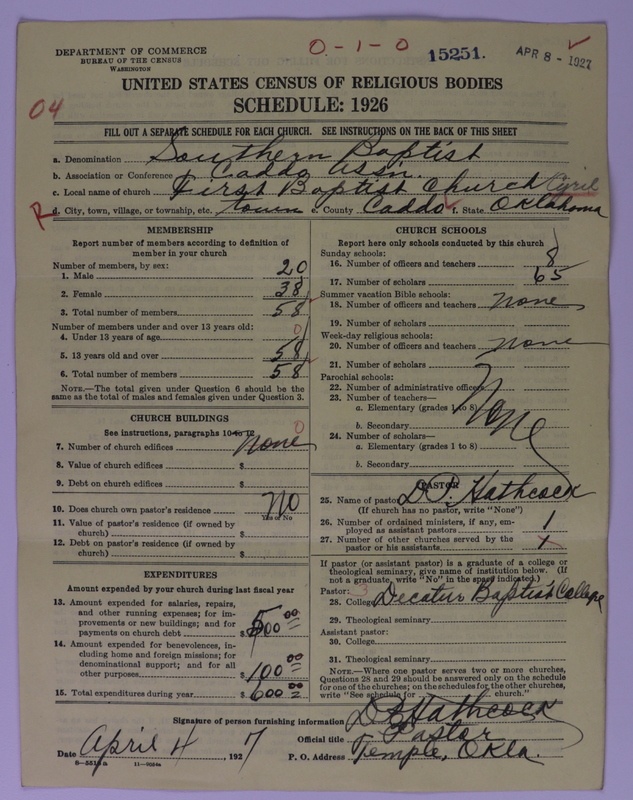 DEPARTMENT OF COMMERCE
BUREAU OF THE CENSUS
WASHINGTON
0-1-0
15251.
APR 8 - 1927
04
UNITED STATES CENSUS OF RELIGIOUS BODIES
SCHEDULE: 1926
FILL OUT A SEPARATE SCHEDULE FOR EACH CHURCH. SEE INSTRUCTIONS ON THE BACK OF THIS SHEET
a. Denomination Southern Baptist
b. Association or Conference Caddo Assn.
c. Local name of church First Baptist Church Cyril
R
d. City, town, village, or township, etc. town e. County Caddo f. State Oklahoma
MEMBERSHIP
Report number of members according to definition of member in your church
Number of members, by sex:
1. Male 20
2. Female 38
3. Total number of members 58
Number of members under and over 13 years old:
4. Under 13 years of age 0
5. 13 years old and over 58
6. Total number of members 58
NOTE.—The total given under Question 6 should be the
same as the total of males and females given under Question 3.
CHURCH BUILDINGS
See instructions, paragraphs 10 to 12
7. Number of church edifices none 0
8. Value of church edifices $
9. Debt on church edifices $
10. Does church own pastor's residence NO
Yes or No
11. Value of pastor's residence (if owned by
church) $
12. Debt on pastor's residence (if owned by
church) $
EXPENDITURES
Amount expended by your church during last fiscal year
13. Amount expended for salaries, repairs,
and other running expenses; for im-
provements or new buildings; and for
payments on church debt $ 500 00
14. Amount expended for benevolences, in-
cluding home and foreign missions; for
denominational support; and for all
other purposes $ 100 00
15. Total expenditures during year $ 600 00
CHURCH SCHOOLS
Report here only schools conducted by this church
Sunday schools:
16. Number of officers and teachers 8
17. Number of scholars 65
Summer vacation Bible schools:
18. Number of officers and teachers none
19. Number of scholars
Week-day religious schools:
20. Number of officers and teachers none
21. Number of scholars
Parochial schools:
22. Number of administrative officers
23. Number of teachers—
a. Elementary (grades 1 to 8)
None
b. Secondary
24. Number of scholars—
a. Elementary (grades 1 to 8)
b. Secondary
PASTOR
25. Name of pastor D.P. Hathcock
(If church has no pastor, write "None")
26. Number of ordained ministers, if any, em-
ployed as assistant pastors 1
27. Number of other churches served by the
pastor or his assistants 1
If pastor (or assistant pastor) is a graduate of a college or
theological seminary, give name of institution below. (If
not a graduate, write "No" in the space indicated.)
Pastor: 3
28. College Decatur Baptist College
29. Theological seminary
Assistant pastor:
30. College
31. Theological seminary
NOTE.—Where one pastor serves two or more churches,
Questions 28 and 29 should be answered only on the schedule
for one of the churches; on the schedules for the other churches,
write "See schedule for church."
Signature of person furnishing information D P Hathcock
Official title Pastor
Date April 4, 1927
P. O. Address Temple, Okla.
11-9064a